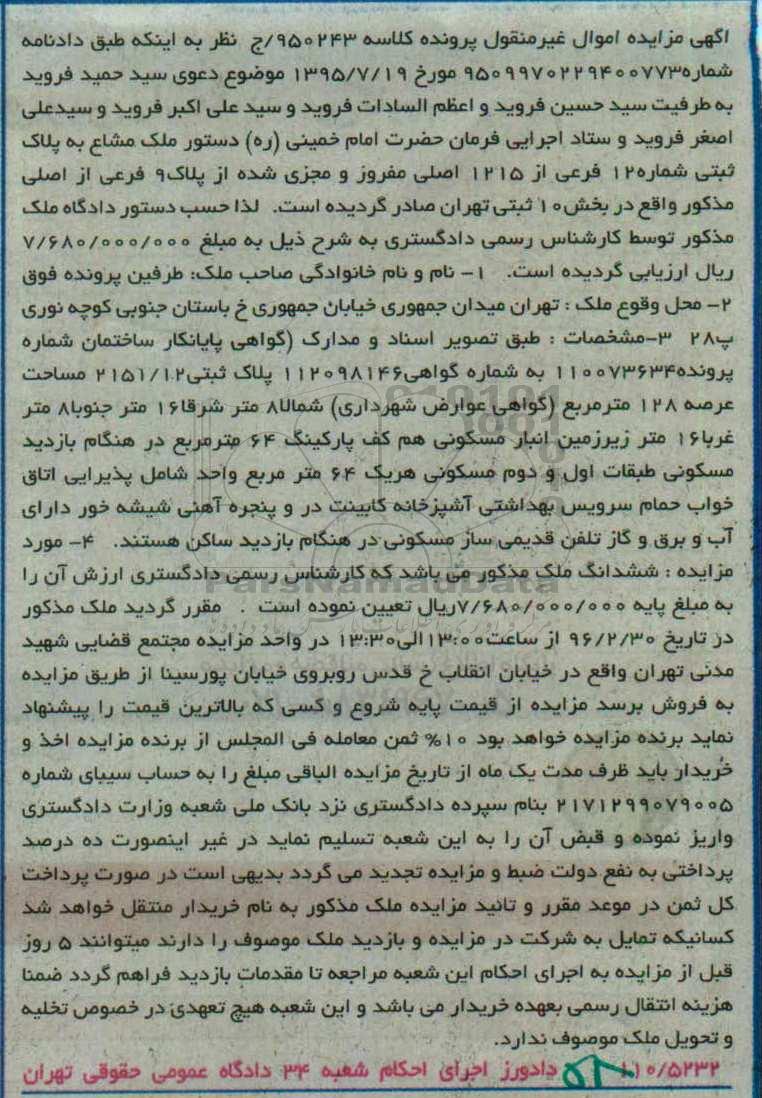 اگهی مزایده اموال غیرمنقول پرونده کلاسه ۹۵۰۲۴۳/ج نظر به اینکه طبق دادنامه
شماره۹۵۰۹۹۷۰۲۲۹۴۰۰۷۷۳ مورخ ۱۳۹۵/۷/۱۹ موضوع دعوی سید حمید فروید
به طرفیت سید حسین فروید و اعظم السادات فروید و سید علی اکبر فروید و سیدعلی
اصغر فروید و ستاد اجرایی فرمان حضرت امام خمینی (ره) دستور ملک مشاع به پلاک
ثبتی شماره۱۲ فرعی از ۱۲۱۵ اصلی مفروز و مجزی شده از پلاک۹ فرعی از اصلی
مذکور واقع در بخش۱۰ ثبتی تهران صادر گردیده است. لذا حسب دستور دادگاه ملک
مذکور توسط کارشناس رسمی دادگستری به شرح ذیل به مبلغ ۷/۶۸۰/۰۰۰/۰۰۰
ریال ارزیابی گردیده است. ۱- نام و نام خانوادگی صاحب ملک: طرفین پرونده فوق
۲- محل وقوع ملک : تهران میدان جمهوری خیابان جمهوری خ باستان جنوبی کوچه نوری
پ۲۸ ۳-مشخصات : طبق تصویر اسناد و مدارک (گواهی پایانکار ساختمان شماره
پرونده۱۱۰۰۷۳۶۳۴ به شماره گواهی۱۱۲۰۹۸۱۴۶ پلاک ثبتی۲۱۵۱/۱۲ مساحت
عرصه ۱۲۸ مترمربع (گواهی عوارض شهرداری) شمالا۸ متر شرقا۱۶ متر جنوبا۸ متر
غربا۱۶ متر زیرزمین انبار مسکونی هم کف پارکینگ ۶۴ مترمربع در هنگام بازدید
مسکونی طبقات اول و دوم مسکونی هریک ۶۴ متر مربع واحد شامل پذیرایی اتاق
خواب حمام سرویس بهداشتی آشپزخانه کابینت در و پنجره آهنی شیشه خور دارای
آب و برق و گاز تلفن قدیمی ساز مسکونی در هنگام بازدید ساکن هستند. ۴- مورد
مزایده : ششدانگ ملک مذکور می باشد که کارشناس رسمی دادگستری ارزش آن را
به مبلغ پایه ۷/۶۸۰/۰۰۰/۰۰۰ریال تعیین نموده است . مقرر گردید ملک مذکور
در تاریخ ۹۶/۲/۳۰ از ساعت۱۳:۰۰الی۱۳:۳۰ در واحد مزایده مجتمع قضایی شهید
مدنی تهران واقع در خیابان انقلاب خ قدس روبروی خیابان پورسینا از طریق مزایده
به فروش برسد مزایده از قیمت پایه شروع و کسی که بالاترین قیمت را پیشنهاد
نماید برنده مزایده خواهد بود ۱۰% ثمن معامله فی المجلس از برنده مزایده اخذ و
خریدار باید ظرف مدت یک ماه از تاریخ مزایده الباقی مبلغ را به حساب سیبای شماره
۲۱۷۱۲۹۹۰۷۹۰۰۵ بنام سپرده دادگستری نزد بانک ملی شعبه وزارت دادگستری
واریز نموده و قبض آن را به این شعبه تسلیم نماید در غیر اینصورت ده درصد
پرداختی به نفع دولت ضبط و مزایده تجدید می گردد بدیهی است در صورت پرداخت
کل ثمن در موعد مقرر و تائید مزایده ملک مذکور به نام خریدار منتقل خواهد شد
کسانیکه تمایل به شرکت در مزایده و بازدید ملک موصوف را دارند میتوانند ۵ روز
قبل از مزایده به اجرای احکام این شعبه مراجعه تا مقدمات بازدید فراهم گردد ضمنا
هزینه انتقال رسمی بعهده خریدار می باشد و این شعبه هیچ تعهدی در خصوص تخلیه
و تحویل ملک موصوف ندارد.
۱۱۰/۵۲۳۲ دادورز اجرای احکام شعبه ۳۴ دادگاه عمومی حقوقی تهران
ParsNamadData